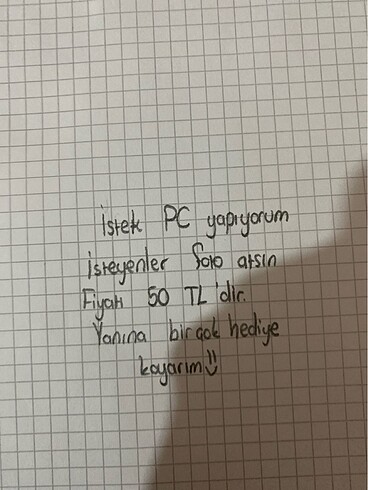 İstek PC yapıyorum
isteyenler Soro atsın
Fiyatı 50 TL'dir.
Yanına bir çok hediye
koyarım